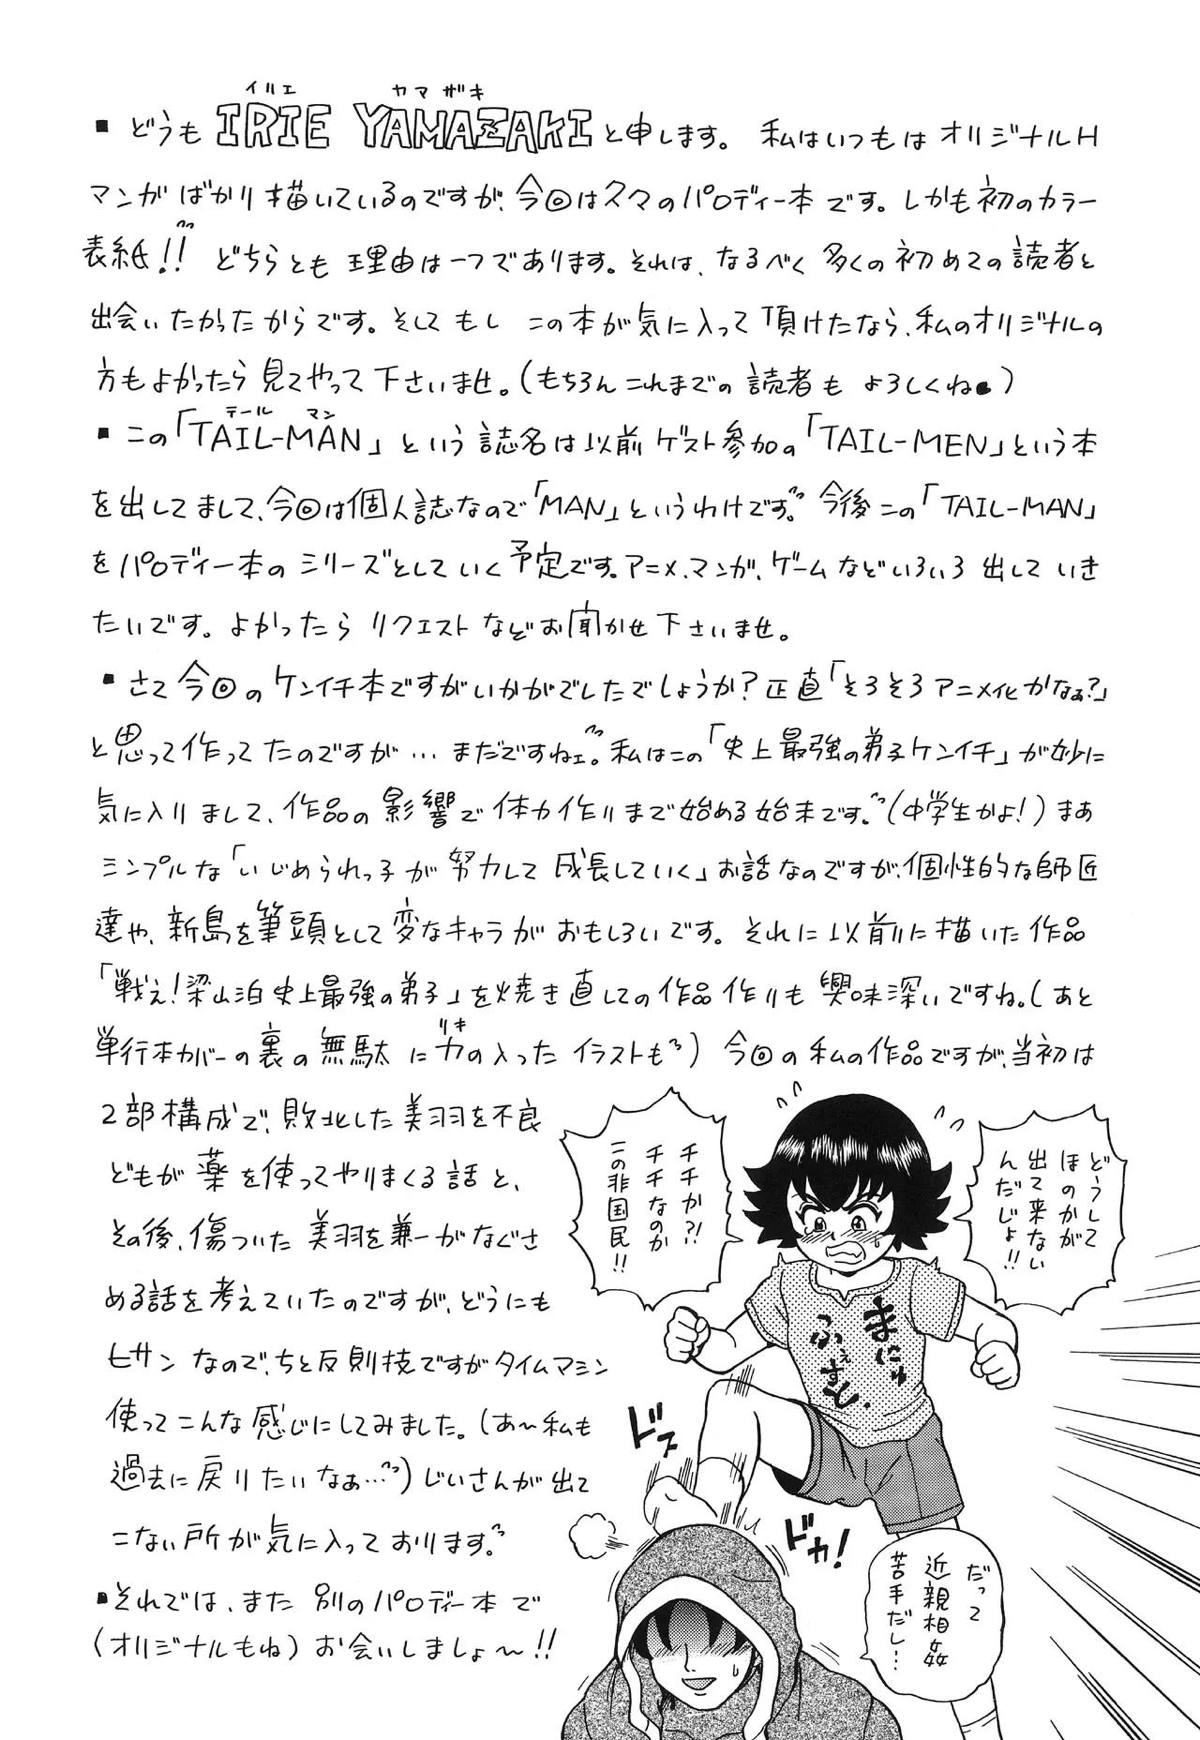 イリエ ヤマザキ
▪どうも IRIE YAMAZAKIと申します。 私はいつもは オリジナルH
マンガ ばかり 描いているのですが、今回は久々のパロディー本です。しかも初のカラー
表紙!! どちらとも 理由は一つであります。それは、なるべく 多くの初めての読者と
出会いたかったからです。そして もし この本が気に入って 頂けたなら、私のオリジナルの
方もよかったら 見てやって 下さいませ。(もちろん これまでの 読者も よろしくね)
テール マン
▪この「TAIL-MAN」という誌名は以前 ゲスト参加の「TAIL-MEN」という本
を出してまして、今回は個人誌なので「MAN」というわけです。今後この「TAIL-MAN」
をパロディー本の シリーズとしていく 予定です。アニメ、マンガ、ゲームなどいろいろ 出していき
たいです。よかったら リクエストなどお聞かせ下さいませ。
▪さて 今回の ケンイチ本ですがいかがでしたでしょうか?正直「そろそろ アニメ化かなぁ?」
と思って作ってたのですが…まだですねェ。私はこの「史上最強の弟子ケンイチ」が妙に
気に入りまして、作品の影響で体力作りまで始める始末です。(中学生かよ!)まあ
シンプルな「いじめられっ子が 努力して 成長していく」お話なのですが、個性的な師匠
達や、新島を筆頭として変なキャラがおもしろいです。それに以前に描いた作品
「戦え!梁山泊 史上最強の弟子」を焼き直しての作品作りも 興味深いですね。(あと
リキ
単行本カバーの裏の無駄に力の入ったイラストも)今回の私の作品ですが、当初は
2部構成で、敗北した美羽を不良
どもが薬を使ってやりまくる話と、
その後、傷ついた美羽を兼一がなぐさ
める話を考えていたのですが、どうにも
ヒサンなので、ちと反則技ですがタイムマシン
使ってこんな感じにしてみました。(あ〜私も
過去に戻りたいなぁ…)じいさんが出て
こない所が気に入っております。
▪それでは、また 別のパロディー本で
(オリジナルもね)お会いしましょ〜!!
どうして
ほのかが
出て来ない
んだじょ!!
チチか?!
チチなのか
この非国民!!
まにゅ
ふぇすと。
ドス
ドカ!
だって
近親相姦
苦手だし…